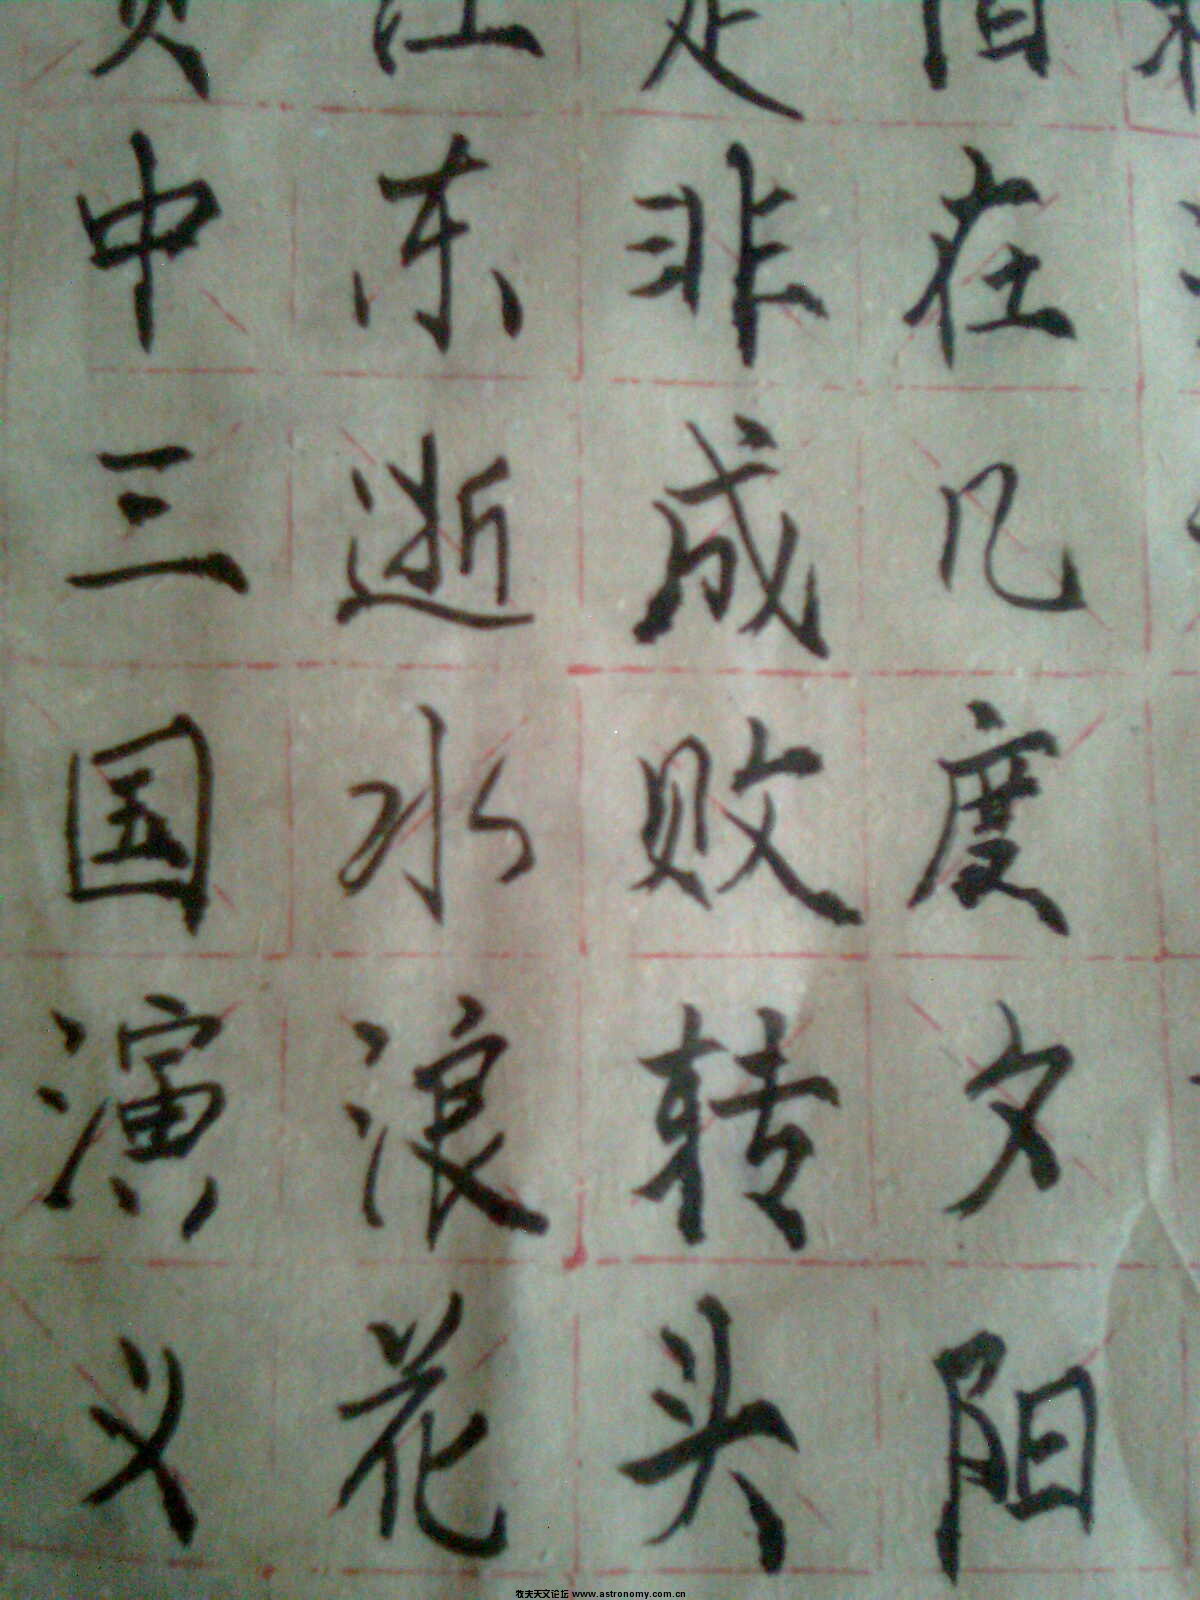 旧在几度夕阳
是非成败转头
江东逝水浪花
贯中三国演义
牧夫天文论坛 www.astronomy.com.cn